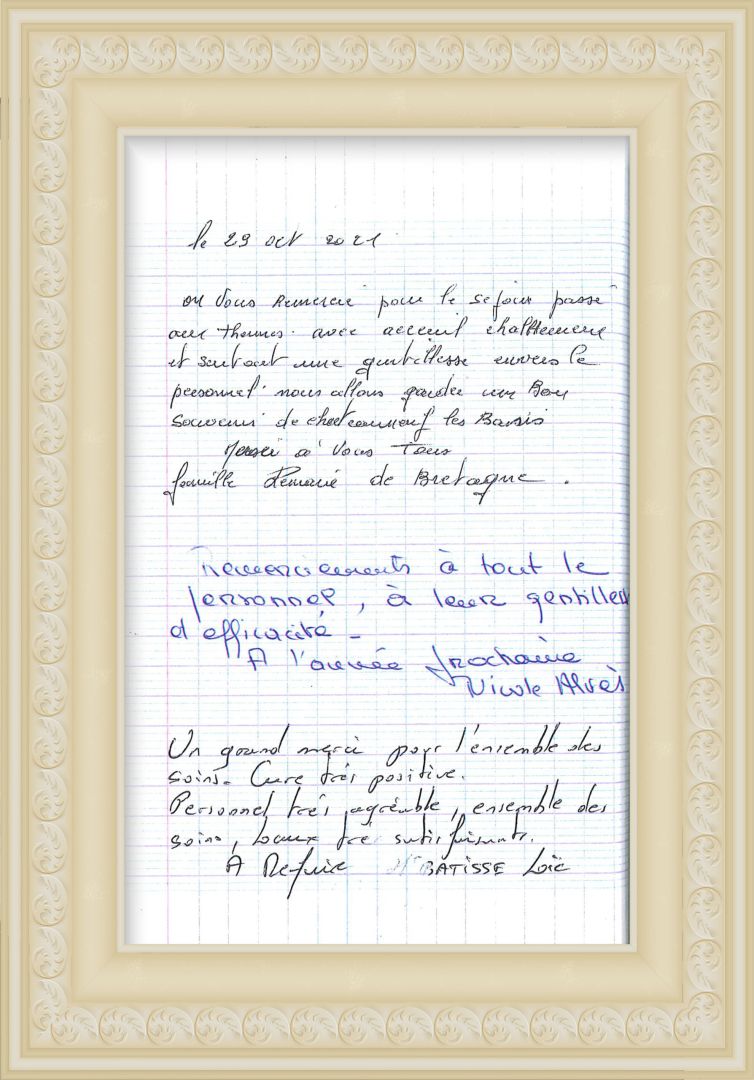 le 29 oct 2021
on Vous Remercie pour le séjour passé
aux thermes. avec acceuil
et surtout une gentillesse envers le
personnel. nous allons garder un Bon
souvenir de chateauneuf les Bains
Merci a Vous Tous
famille de Bretagne.
Remerciements à tout le
personnel, à leur gentilles
d'efficacité -
A l'année prochaine
Nicole Alvès
Un grand merci pour l'ensemble des
soins. Cure très positive.
Personnel très agréable, ensemble des
soins, locaux très satisfaisants.
A Refaire BATISSE Loïc